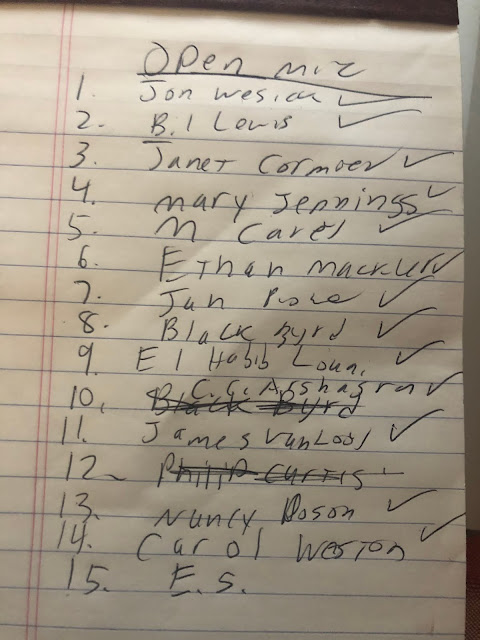 OPen mic
1. Jon wesick ✓
2. B.l Lewis ✓
3. Janet Cormier ✓
4. mary Jennings ✓
5. M Carey ✓
6. Ethan mackler ✓
7. Jan ✓
8. Black Byrd ✓
9. El Habib Louai ✓
10. C.C. Arshagra ✓
Black Byrd
11. James VanLooy ✓
12. Philip Curtis
13. Nancy Doson ✓
14. Carol Weston ✓
15. E.S.